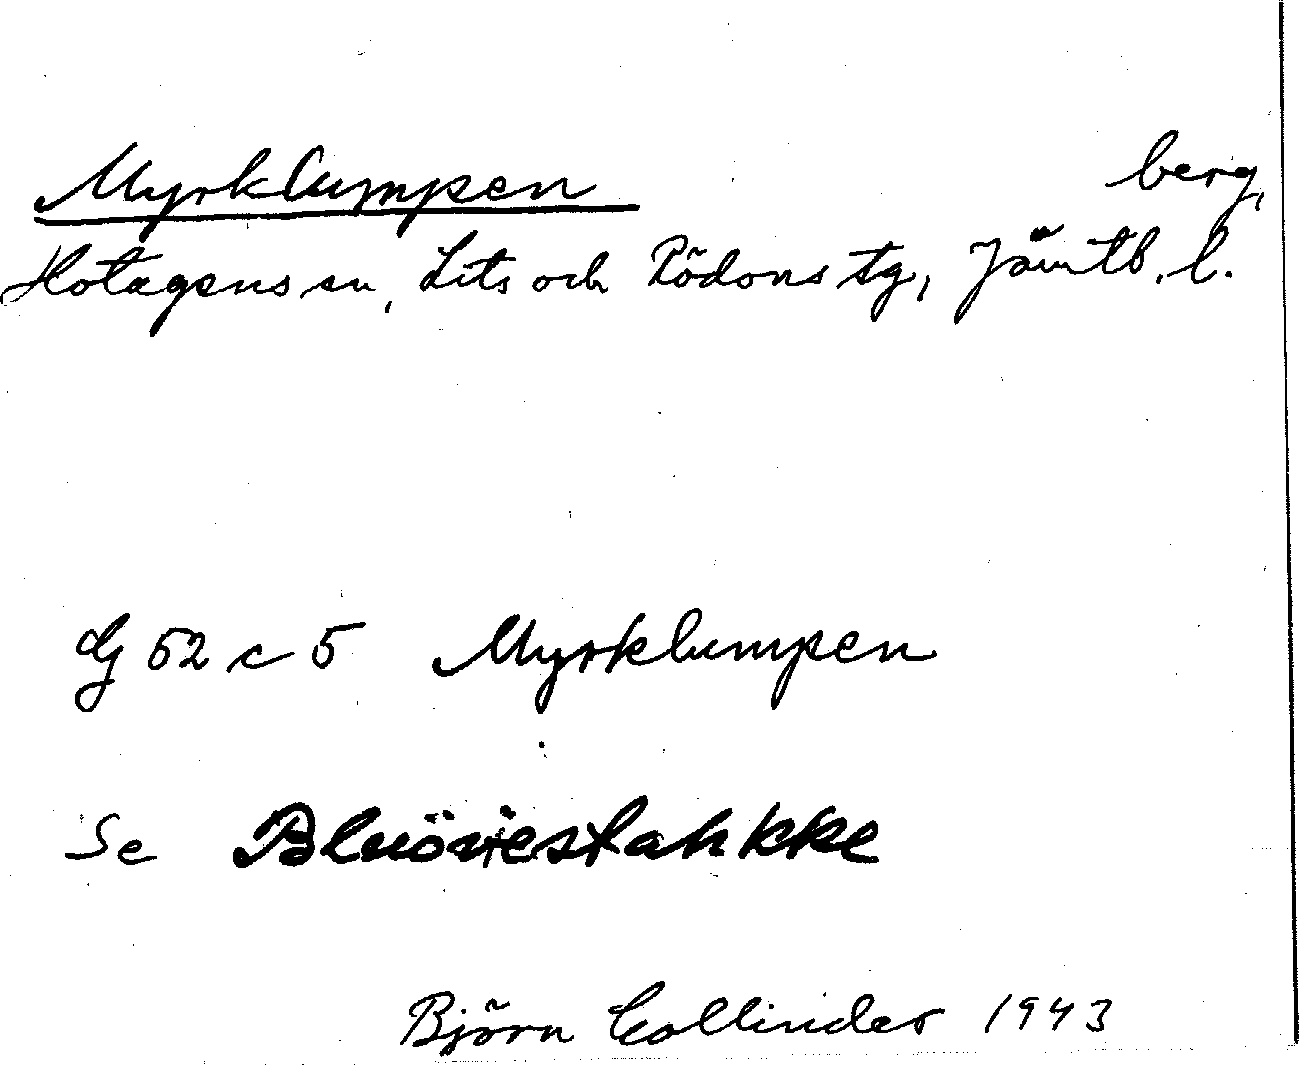 Myrklumpen berg,
Hotagens sn, Lits och Rödöns tg, Jämtb. l.
G 52 c 5 Myrklumpen
Se
Björn Collinder 1943